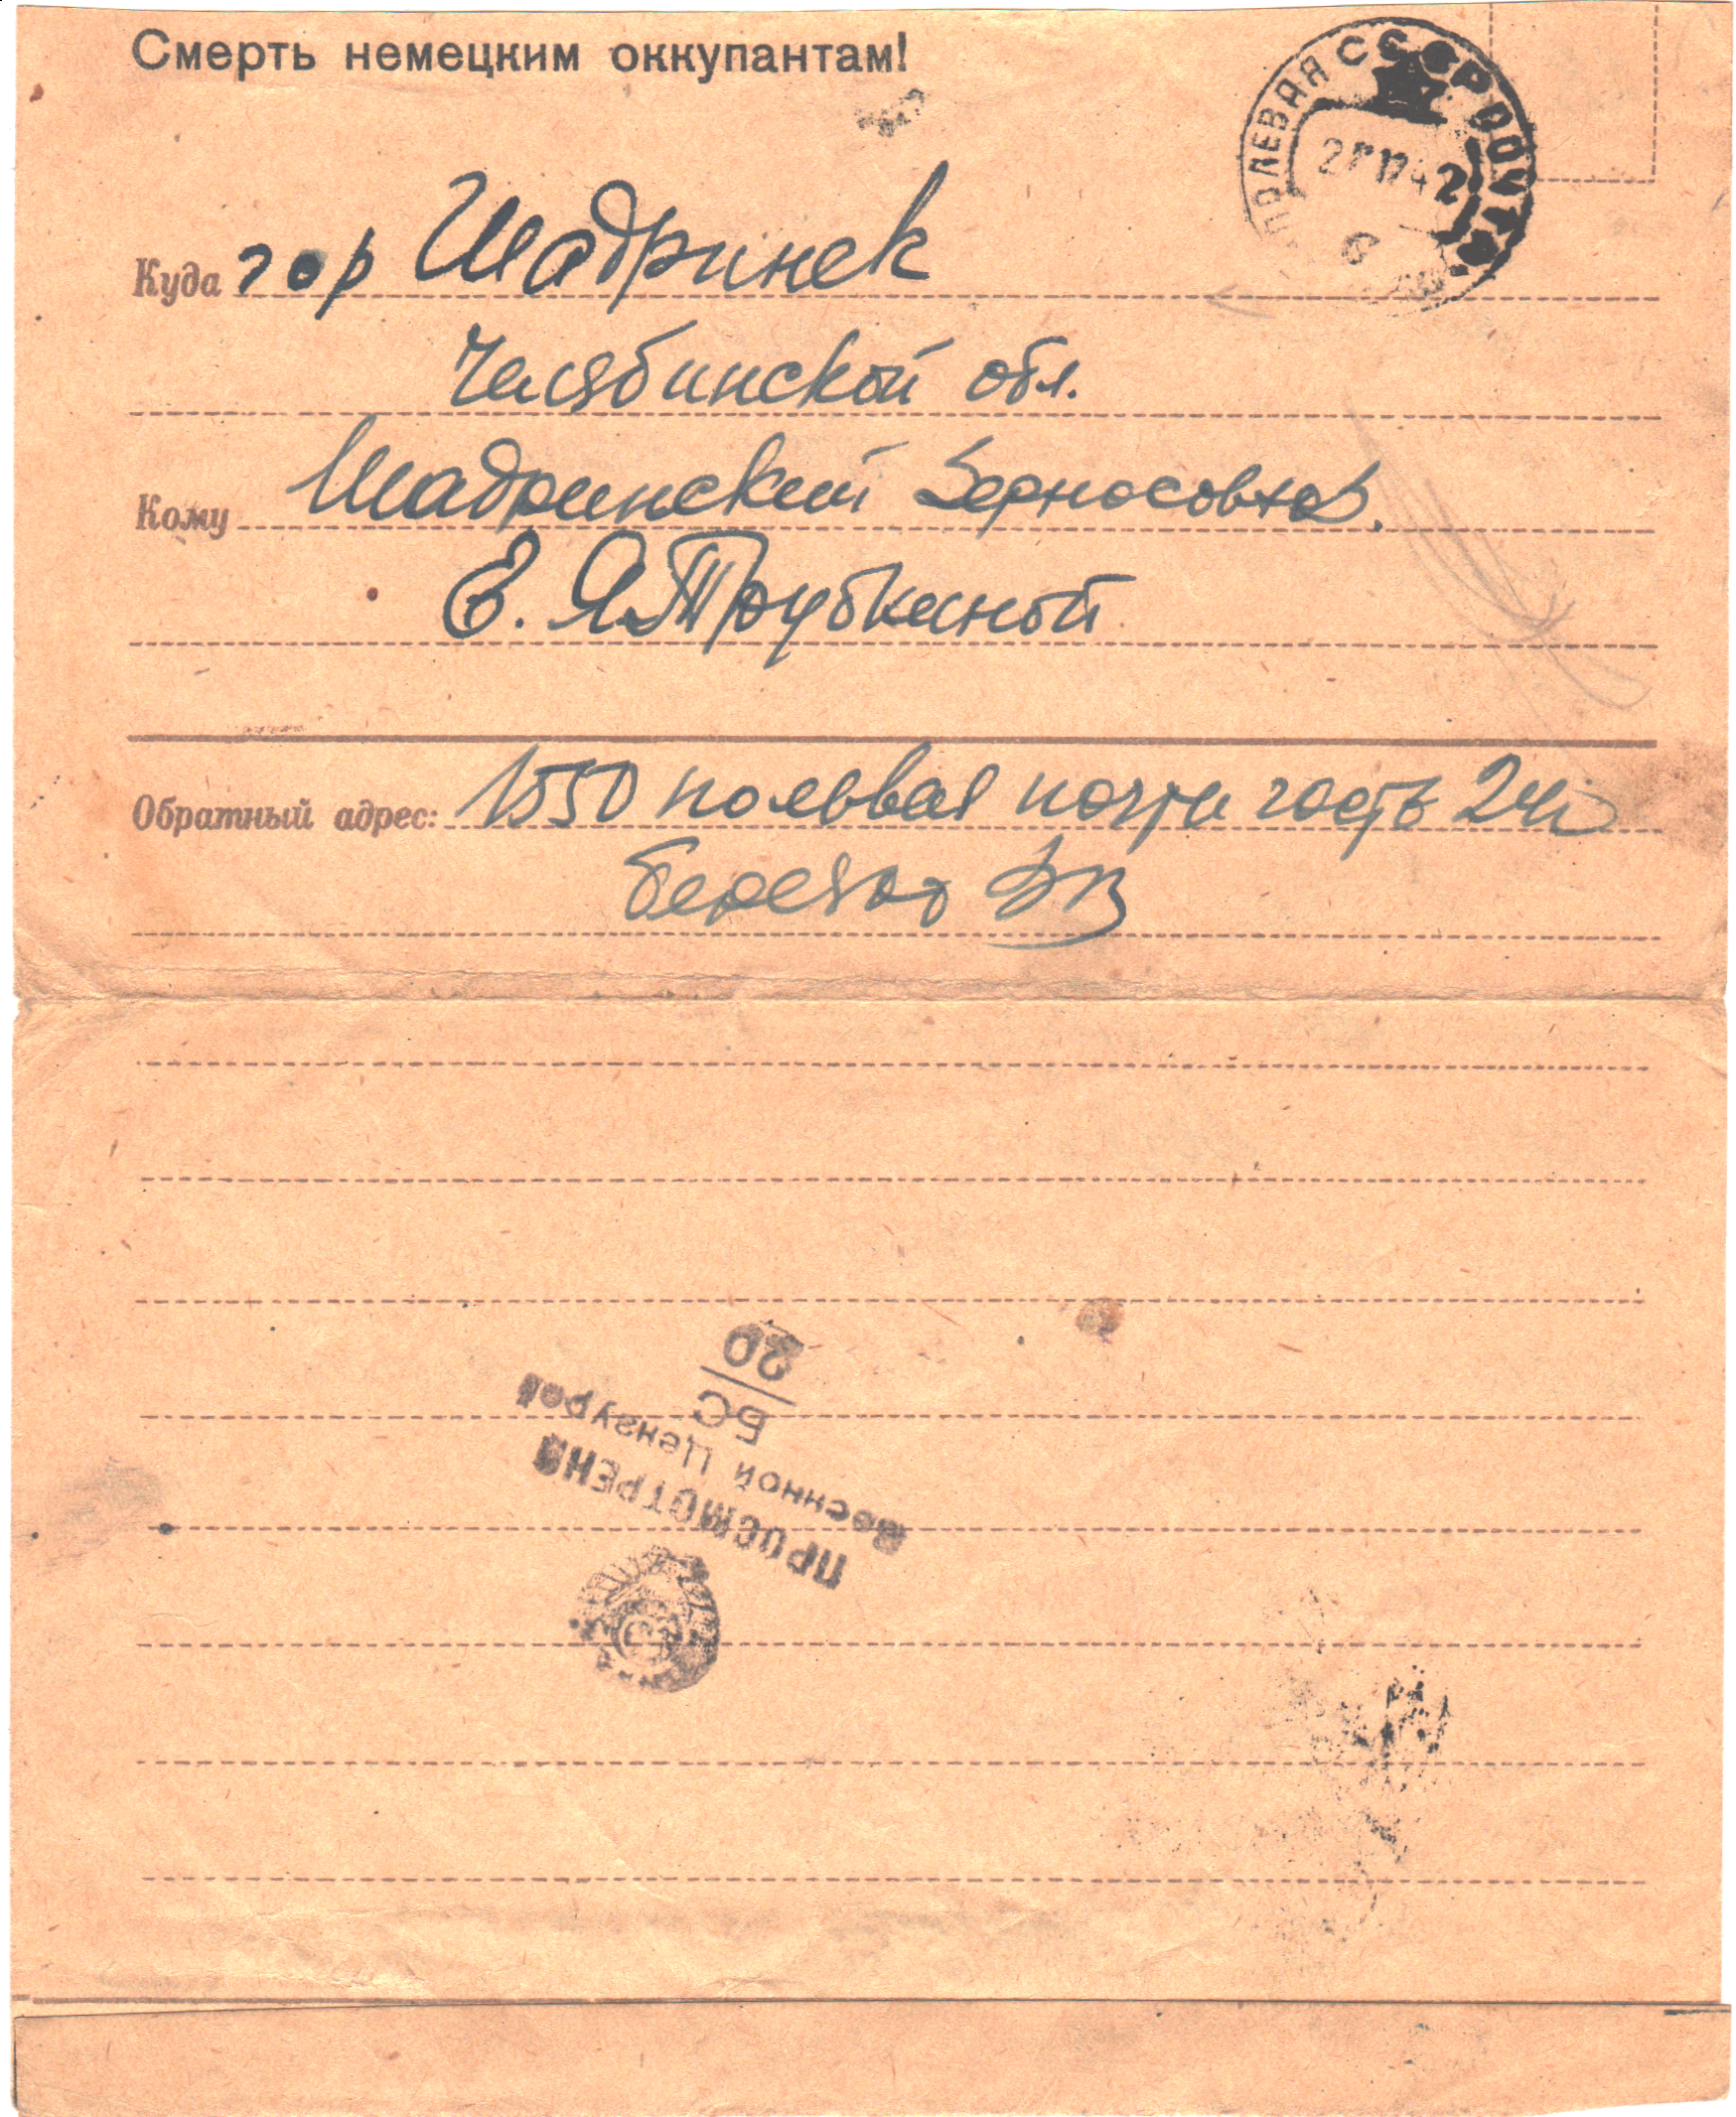 Смерть немецким оккупантам!
ПОЛЕВАЯ СССР ПОЧТА
42
Куда гор Шадринск
Челябинской обл.
Кому Шадринский Зерносовхоз.
Е. Я. Трубкиной
Обратный адрес: 1550 полевая почта часть
ПРОСМОТРЕНО
Военной Цензурой
БС
20